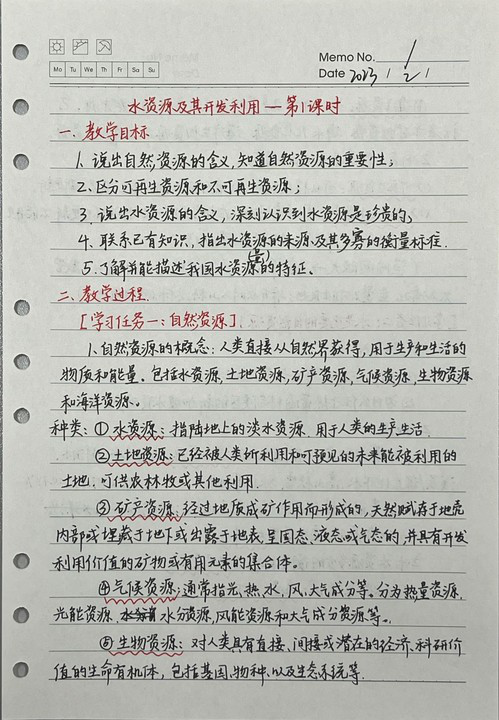 Memo No. 1
Mo Tu We Th Fr Sa Su
Date 2023 / 2 /
水资源及其开发利用 — 第1课时
一、教学目标
1. 说出自然资源的含义,知道自然资源的重要性;
2. 区分可再生资源和不可再生资源;
3. 说出水资源的含义,深刻认识到水资源是珍贵的;
4. 联系已有知识,指出水资源的来源及其多寡的衡量标准.
5. 了解并能描述我国水资源(总量)的特征、
二、教学过程.
[学习任务一:自然资源].
1. 自然资源的概念:人类直接从自然界获得,用于生产和生活的
物质和能量. 包括水资源,土地资源,矿产资源,气候资源,生物资源
和海洋资源。
种类:① 水资源:指陆地上的淡水资源. 用于人类的生产生活.
② 土地资源:已经被人类所利用和可预见的未来能被利用的
土地. 可供农林牧或其他利用.
③ 矿产资源:经过地质成矿作用而形成的,天然赋存于地壳
内部或埋藏于地下或出露于地表,呈固态、液态或气态的,并具有开发
利用价值的矿物或有用元素的集合体。
④ 气候资源:通常指光、热、水、风、大气成分等。分为热量资源,
光能资源, 水分资源,风能资源和大气成分资源等。
⑤ 生物资源:对人类具有直接、间接或潜在的经济、科研价
值的生命有机体,包括基因、物种、以及生态系统等.